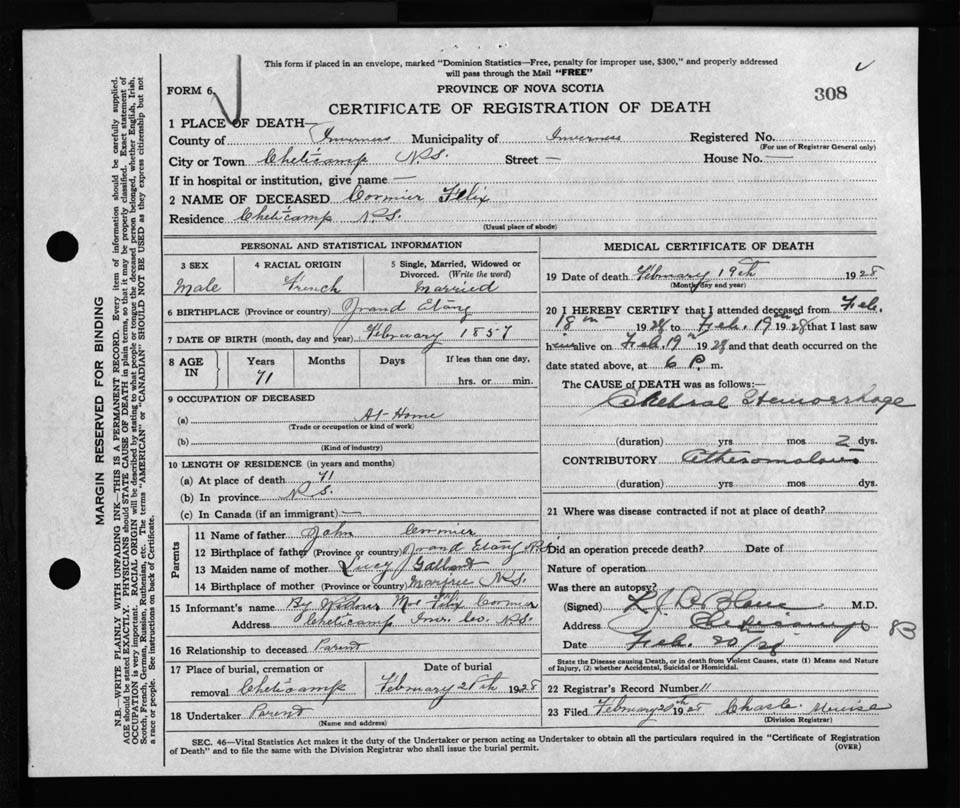 This form if placed in an envelope, marked "Dominion Statistics—Free, penalty for improper use, $300," and properly addressed
will pass through the Mail "FREE"
FORM 6
PROVINCE OF NOVA SCOTIA
308
CERTIFICATE OF REGISTRATION OF DEATH
1 PLACE OF DEATH—
County of Inverness Municipality of Inverness Registered No.
(For use of Registrar General only)
City or Town Cheticamp N.S. Street — House No. —
If in hospital or institution, give name —
2 NAME OF DECEASED Cormier Felix
Residence Cheticamp N.S.
(Usual place of abode)
PERSONAL AND STATISTICAL INFORMATION
3 SEX
Male
4 RACIAL ORIGIN
French
5 Single, Married, Widowed or
Divorced. (Write the word)
Married
6 BIRTHPLACE (Province or country) Grand Etang
7 DATE OF BIRTH (month, day and year) February 1857
8 AGE IN
Years Months Days
71
If less than one day,
hrs. or min.
9 OCCUPATION OF DECEASED
(a) At Home
(Trade or occupation or kind of work)
(b)
(Kind of industry)
10 LENGTH OF RESIDENCE (in years and months)
(a) At place of death 71
(b) In province N.S.
(c) In Canada (if an immigrant) —
Parents
11 Name of father John Cormier
12 Birthplace of father (Province or country) Grand Etang N.S.
13 Maiden name of mother Lucy Gallant
14 Birthplace of mother (Province or country) Margree N.S.
15 Informant's name By Widow Felix Cormier
Address Cheticamp Inv. Co. N.S.
16 Relationship to deceased Parent
17 Place of burial, cremation or
removal Cheticamp
Date of burial
February 21th 1928
18 Undertaker Parent
(Name and address)
MEDICAL CERTIFICATE OF DEATH
19 Date of death February 19th 1928
(Month, day and year)
20 I HEREBY CERTIFY that I attended deceased from Feb.
18th 1928 to Feb. 19th 1928 that I last saw
him alive on Feb. 19th 1928 and that death occurred on
date stated above, at 6 P. m.
The CAUSE of DEATH was as follows:—
Cerebral Hemorrhage
(duration) yrs mos 2 dys.
CONTRIBUTORY Atheromatous
(duration) yrs. mos. dys.
21 Where was disease contracted if not at place of death?
Did an operation precede death? Date of
Nature of operation
Was there an autopsy?
(Signed) M.D.
Address Cheticamp
83
Date Feb. 20/28
State the Disease causing Death, or in death from Violent Causes, state (1) Means and Nature
of Injury, (2) whether Accidental, Suicidal or Homicidal.
22 Registrar's Record Number 11
23 Filed February 20th 1928
(Division Registrar)
SEC. 46—Vital Statistics Act makes it the duty of the Undertaker or person acting as Undertaker to obtain all the particulars required in the "Certificate of Registration
of Death" and to file the same with the Division Registrar who shall issue the burial permit.
(OVER)
MARGIN RESERVED FOR BINDING
N.B.—WRITE PLAINLY WITH UNFADING INK—THIS IS A PERMANENT RECORD. Every item of information should be carefully supplied.
AGE should be stated EXACTLY. PHYSICIANS should STATE CAUSE OF DEATH in plain terms, so that it may be properly classified. Exact statement of
OCCUPATION is very important. RACIAL ORIGIN will be described by stating to what people or tongue the deceased person belonged, whether English, Irish,
Scotch, French, German, Russian, Ruthenian, etc. The terms "AMERICAN" or "CANADIAN" SHOULD NOT BE USED as they express citizenship but not
a race or people. See instructions on back of Certificate.